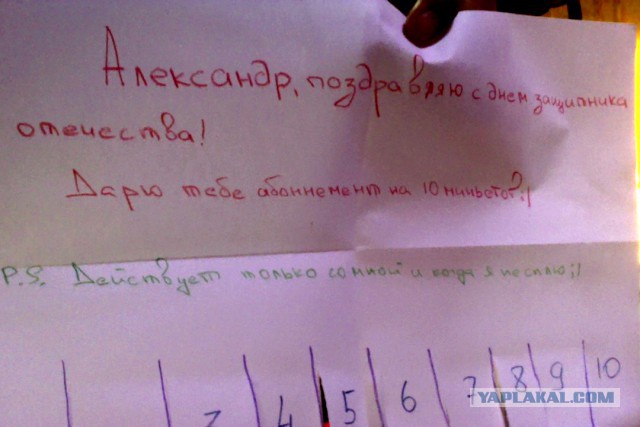 Александр, поздравляю с днем защитника
отечества!
Дарю тебе абонемент на 10 миньетов!
P.S. Действует только со мной и когда я не сплю;)
4 5 6 7 8 9 10
YAPLAKAL.COM